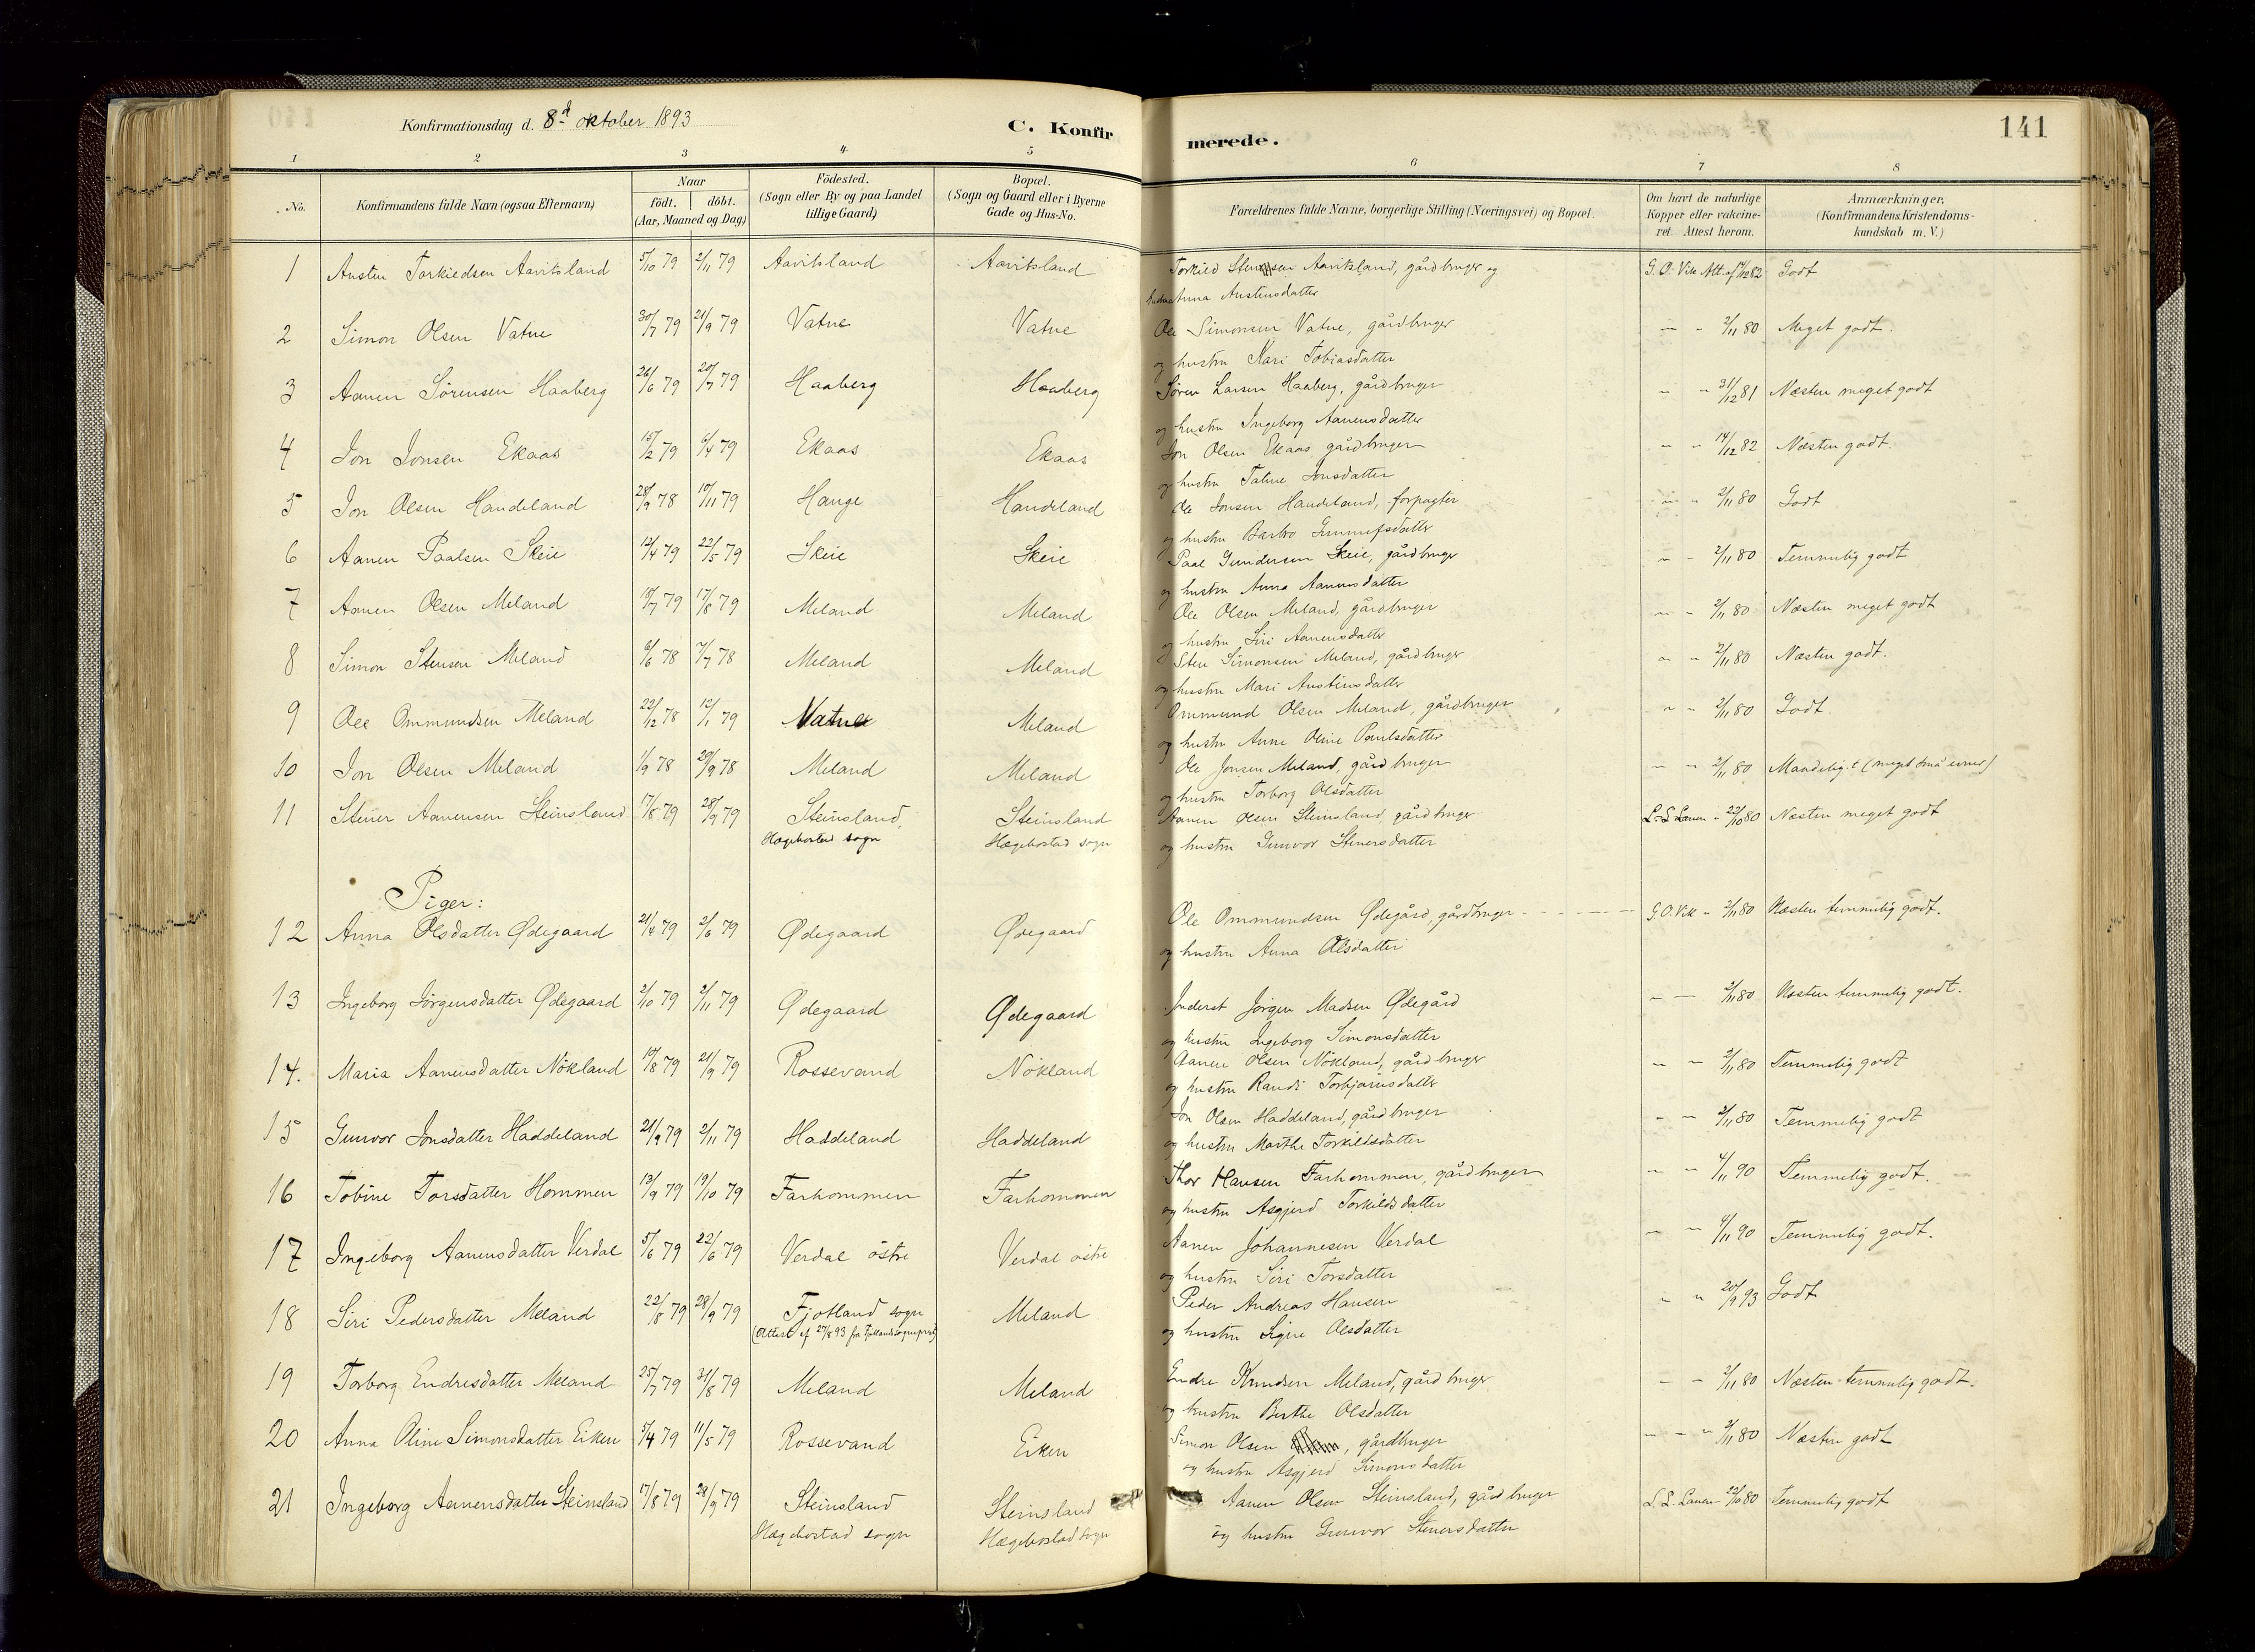 Konfirmationsdag d. 8d oktober 1893
C. Konfirmerede.
141
1 2 3 4 5 6 7 8
No.
Konfirmandens fulde Navn (ogsaa Efternavn)
Naar
födt. döbt.
(Aar, Maaned og Dag)
Födested.
(Sogn eller By og paa Landet
tillige Gaard)
Bopæl.
(Sogn og Gaard eller i Byerne
Gade og Hus-No.
Forældrenes fulde Navne, borgerlige Stilling (Næringsvei) og Bopæl.
Om havt de naturlige
Kopper eller vakcine-
ret. Attest herom.
Anmærkninger,
(Konfirmandens Kristendoms-
kundskab m. V.)
1 Austen Torkiedsen Aavitsland 5/10 79 2/11 79 Aavitsland Aavitsland Torkied Stensen Aavitsland, gårdbruger og G. O. Vik Att. af 82 Godt
hustru Anna Austensdatter
2 Simon Olsen Vatne 30/7 79 21/9 79 Vatne Vatne Ole Simonsen Vatne, gårdbruger – - 2/11 80 Meget godt.
og hustru Kari Tobiasdatter
3 Aanen Sörensen Haaberg 26/6 79 20/7 79 Haaberg Haaberg Sören Larsen Haaberg, gårdbruger – - 31/12 81 Næsten meget godt
og hustru Ingeborg Aanensdatter
4 Jon Jonsen Ekaas 15/2 79 6/4 79 Ekaas Ekaas Jon Olsen Ekaas gårdbruger – - 14/12 82 Næsten godt.
og hustru Tatine Jonsdatter
5 Jon Olsen Handeland 28/9 78 79 Hauge Handeland Ole Jonsen Handeland, forpagter – - 2/11 80 Godt
og hustru Barbro
6 Aanen Paalsen Skeie 12/4 79 22/5 79 Skeie Skeie Paal Gundersen Skeie, gårdbruger – - 2/11 80 Temmelig godt
og hustru Anna Aanensdatter
7 Aanen Olsen Meland 18/7 79 17/8 79 Meland Meland Ole Olsen Meland, gårdbruger – - 2/11 80 Næsten meget godt
og hustru Siri Aanensdatter
8 Simon Stensen Meland 6/6 78 7/7 78 Meland Meland Sten Simonsen Meland, gårdbruger – - 2/11 80 Næsten godt.
og hustru Mari Austensdatter
9 Ole Ommundsen Meland 22/12 78 12/1 79 Vatne Meland Ommund Olsen Meland, gårdbruger – - 2/11 80 Godt.
og hustru Anne Oline Paulsdatter
10 Jon Olsen Meland 1/9 78 29/9 78 Meland Meland Ole Jonsen Meland, gårdbruger – - 2/11 80 Maadelig.t (meget små evner)
og hustru Torborg Olsdatter
11 Stener Aanensen Steinsland 17/8 79 28/9 79 Steinsland, Steinsland Aanen Olsen Steinsland gårdbruger L. L. Lauen - 22/10 80 Næsten meget godt
Hægebostad sogn Hægebostad sogn og hustru Gunvor Stenersdatter
Piger:
12 Anna Olsdatter Ødegaard 21/4 79 2/6 79 Ødegaard Ødegaard Ole Ommundsen Ødegård, gårdbruger G. O. Vik - 2/11 80 Næsten temmelig godt.
og hustru Anna Olsdatter
13 Ingeborg Jörgensdatter Ødegaard 2/10 79 2/11 79 Ødegaard Ødegaard Inderst Jörgen Madsen Ødegård – – 2/11 80 Næsten temmelig godt.
og hustru Ingeborg Simonsdatter
14. Maria Aanensdatter Nökland 19/8 79 21/9 79 Rossevand Nökland Aanen Olsen Nökland, gårdbruger – - 2/11 80 Temmelig godt
og hustru Randi Torbjörnsdatter
15 Gunvor Jonsdatter Haddeland 21/9 79 2/11 79 Haddeland Haddeland Jon Olsen Haddeland, gårdbruger – - 2/11 80 Temmelig godt
og hustru Marthe Torkildsdatter
16 Tobine Torsdatter Hommen 13/9 79 19/10 79 Farhommen Farhommen Thor Hansen Farhommen, gårdbruger – - 4/11 90 Temmelig godt.
og hustru Asgjerd Torkildsdatter
17 Ingeborg Aanensdatter Verdal 5/6 79 22/6 79 Verdal östre Verdal östre Aanen Johannesen Verdal – - 4/11 90 Temmelig godt.
og hustru Siri Torsdatter
18 Siri Pedersdatter Meland 22/8 79 28/9 79 Fjotland sogn Meland Peder Andreas Hansen – - 20/9 93 Godt
(Attest af 27/8 93 fra Fjotlands sognepræst) og hustru Signe Olsdatter
19 Torborg Endresdatter Meland 25/7 79 31/8 79 Meland Meland Endre Knudsen Meland, gårdbruger – - 2/11 80 Næsten temmelig godt.
og hustru Berthe Olsdatter
20 Anna Oline Simonsdatter Eiken 5/4 79 11/5 79 Rossevand Eiken Simon Olsen , gårdbruger – - 2/11 80 Næsten godt
og hustru Asgjerd Simonsdatter
21 Ingeborg Aanensdatter Steinsland 17/8 79 28/9 79 Steinsland Steinsland Aanen Olsen Steinsland, gårdbruger L. L. Lauen - 22/10 80 Temmelig godt
Hægebostad sogn Hægebostad sogn og hustru Gunvor Stenersdatter